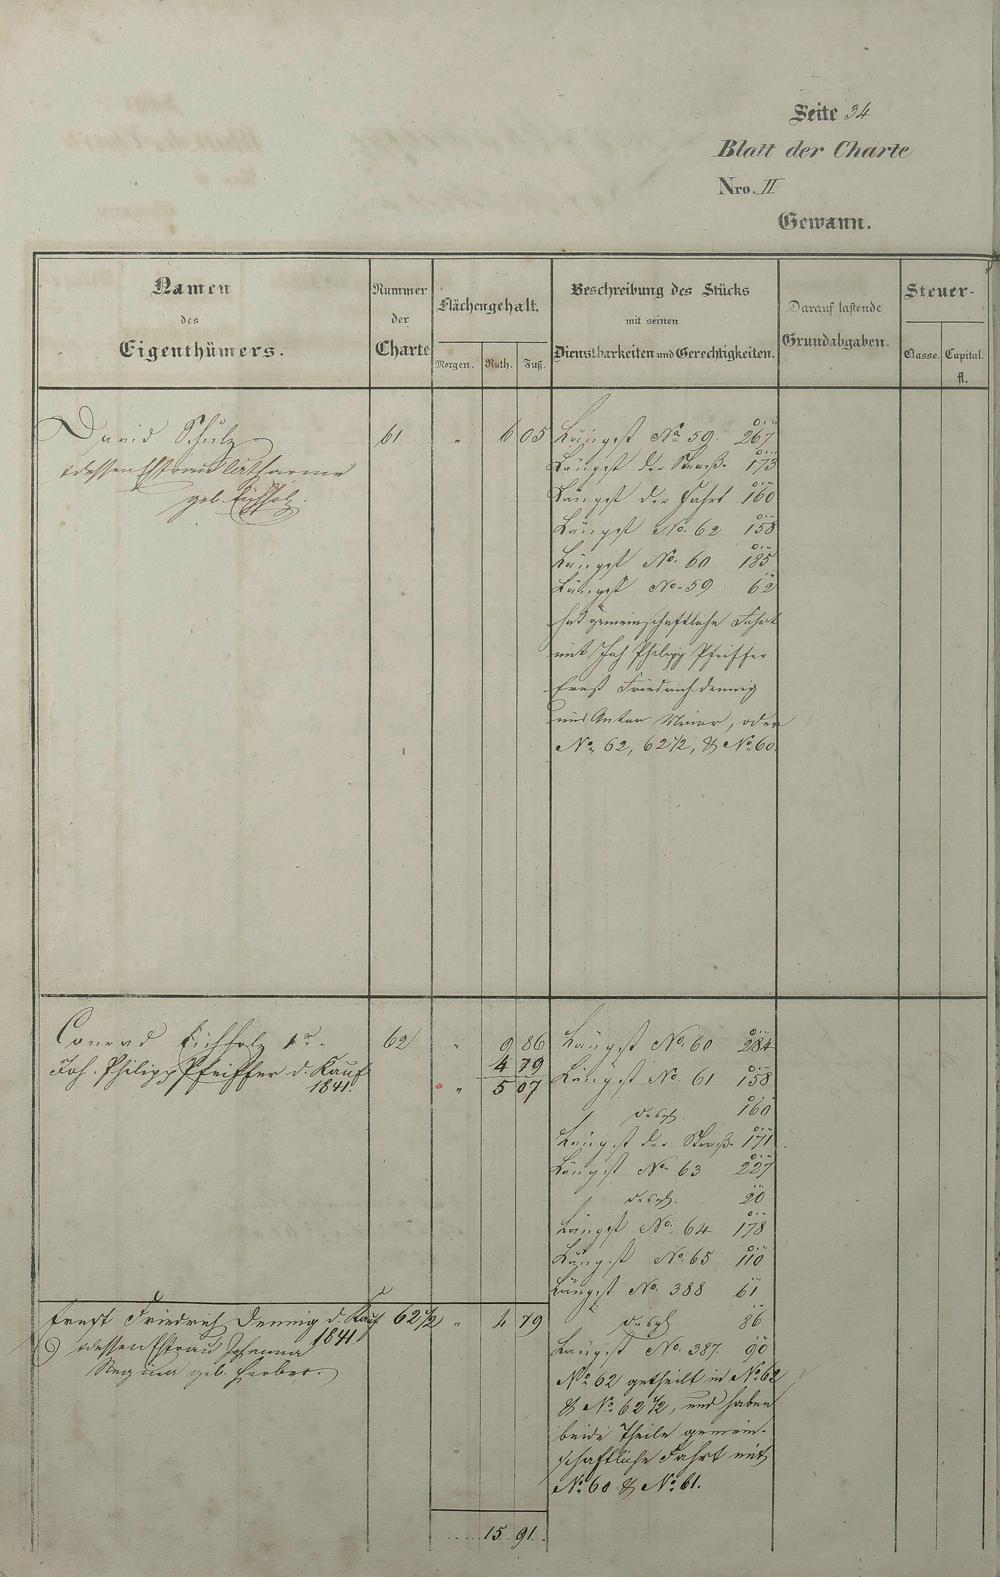 Seite 34
Blatt der Charte
Nro. II
Gewann.
Namen
des
Eigenthümers.
Nummer
der
Charte
Flächengehalt.
Morgen. Ruth. Fuß.
Beschreibung des Stücks
mit seinen
Dienstbarkeiten und Gerechtigkeiten.
Darauf lastende
Grundabgaben.
Steuer-
Classe. Capital.
fl.
David Schulz 61 " 6 05 Längst No. 59. 267
& dessen Ehefrau Catharine Längst der Straße 173
geb. Eichholz. Längst der Fahrt 160
Längst No. 62 158
Längst No. 60 185
Längst No. 59 62
hat gemeinschaftliche Fahrt
mit Joh Philipp Pfeiffer
Ernst Friedrich Dennig
und Anton Maier, oder
No. 62, 62 1/2, & No. 60.
Conrad Eichholz 1r. 62 " 9 86 Längst No. 60 284
4 79
Joh. Philipp Pfeiffer d. Kauf Längst No. 61 158
1841. " 5 07
desgl. 160
Längst der Straße 171
Längst No. 63 227
desgl. 20
Längst No. 64 178
Längst No. 65 110
Längst No. 388 61
Ernst Friedrich Dennig d. Kauf 62 1/2 " 4 79 desgl. 86
1841
& dessen Ehefrau Johanna Längst No. 387. 90
Regina geb. No. 62 getheilt in No. 62
& No. 62 1/2, und haben
beide Theile gemein-
schaftliche Fahrt mit
No. 60 & No. 61.
15 91.